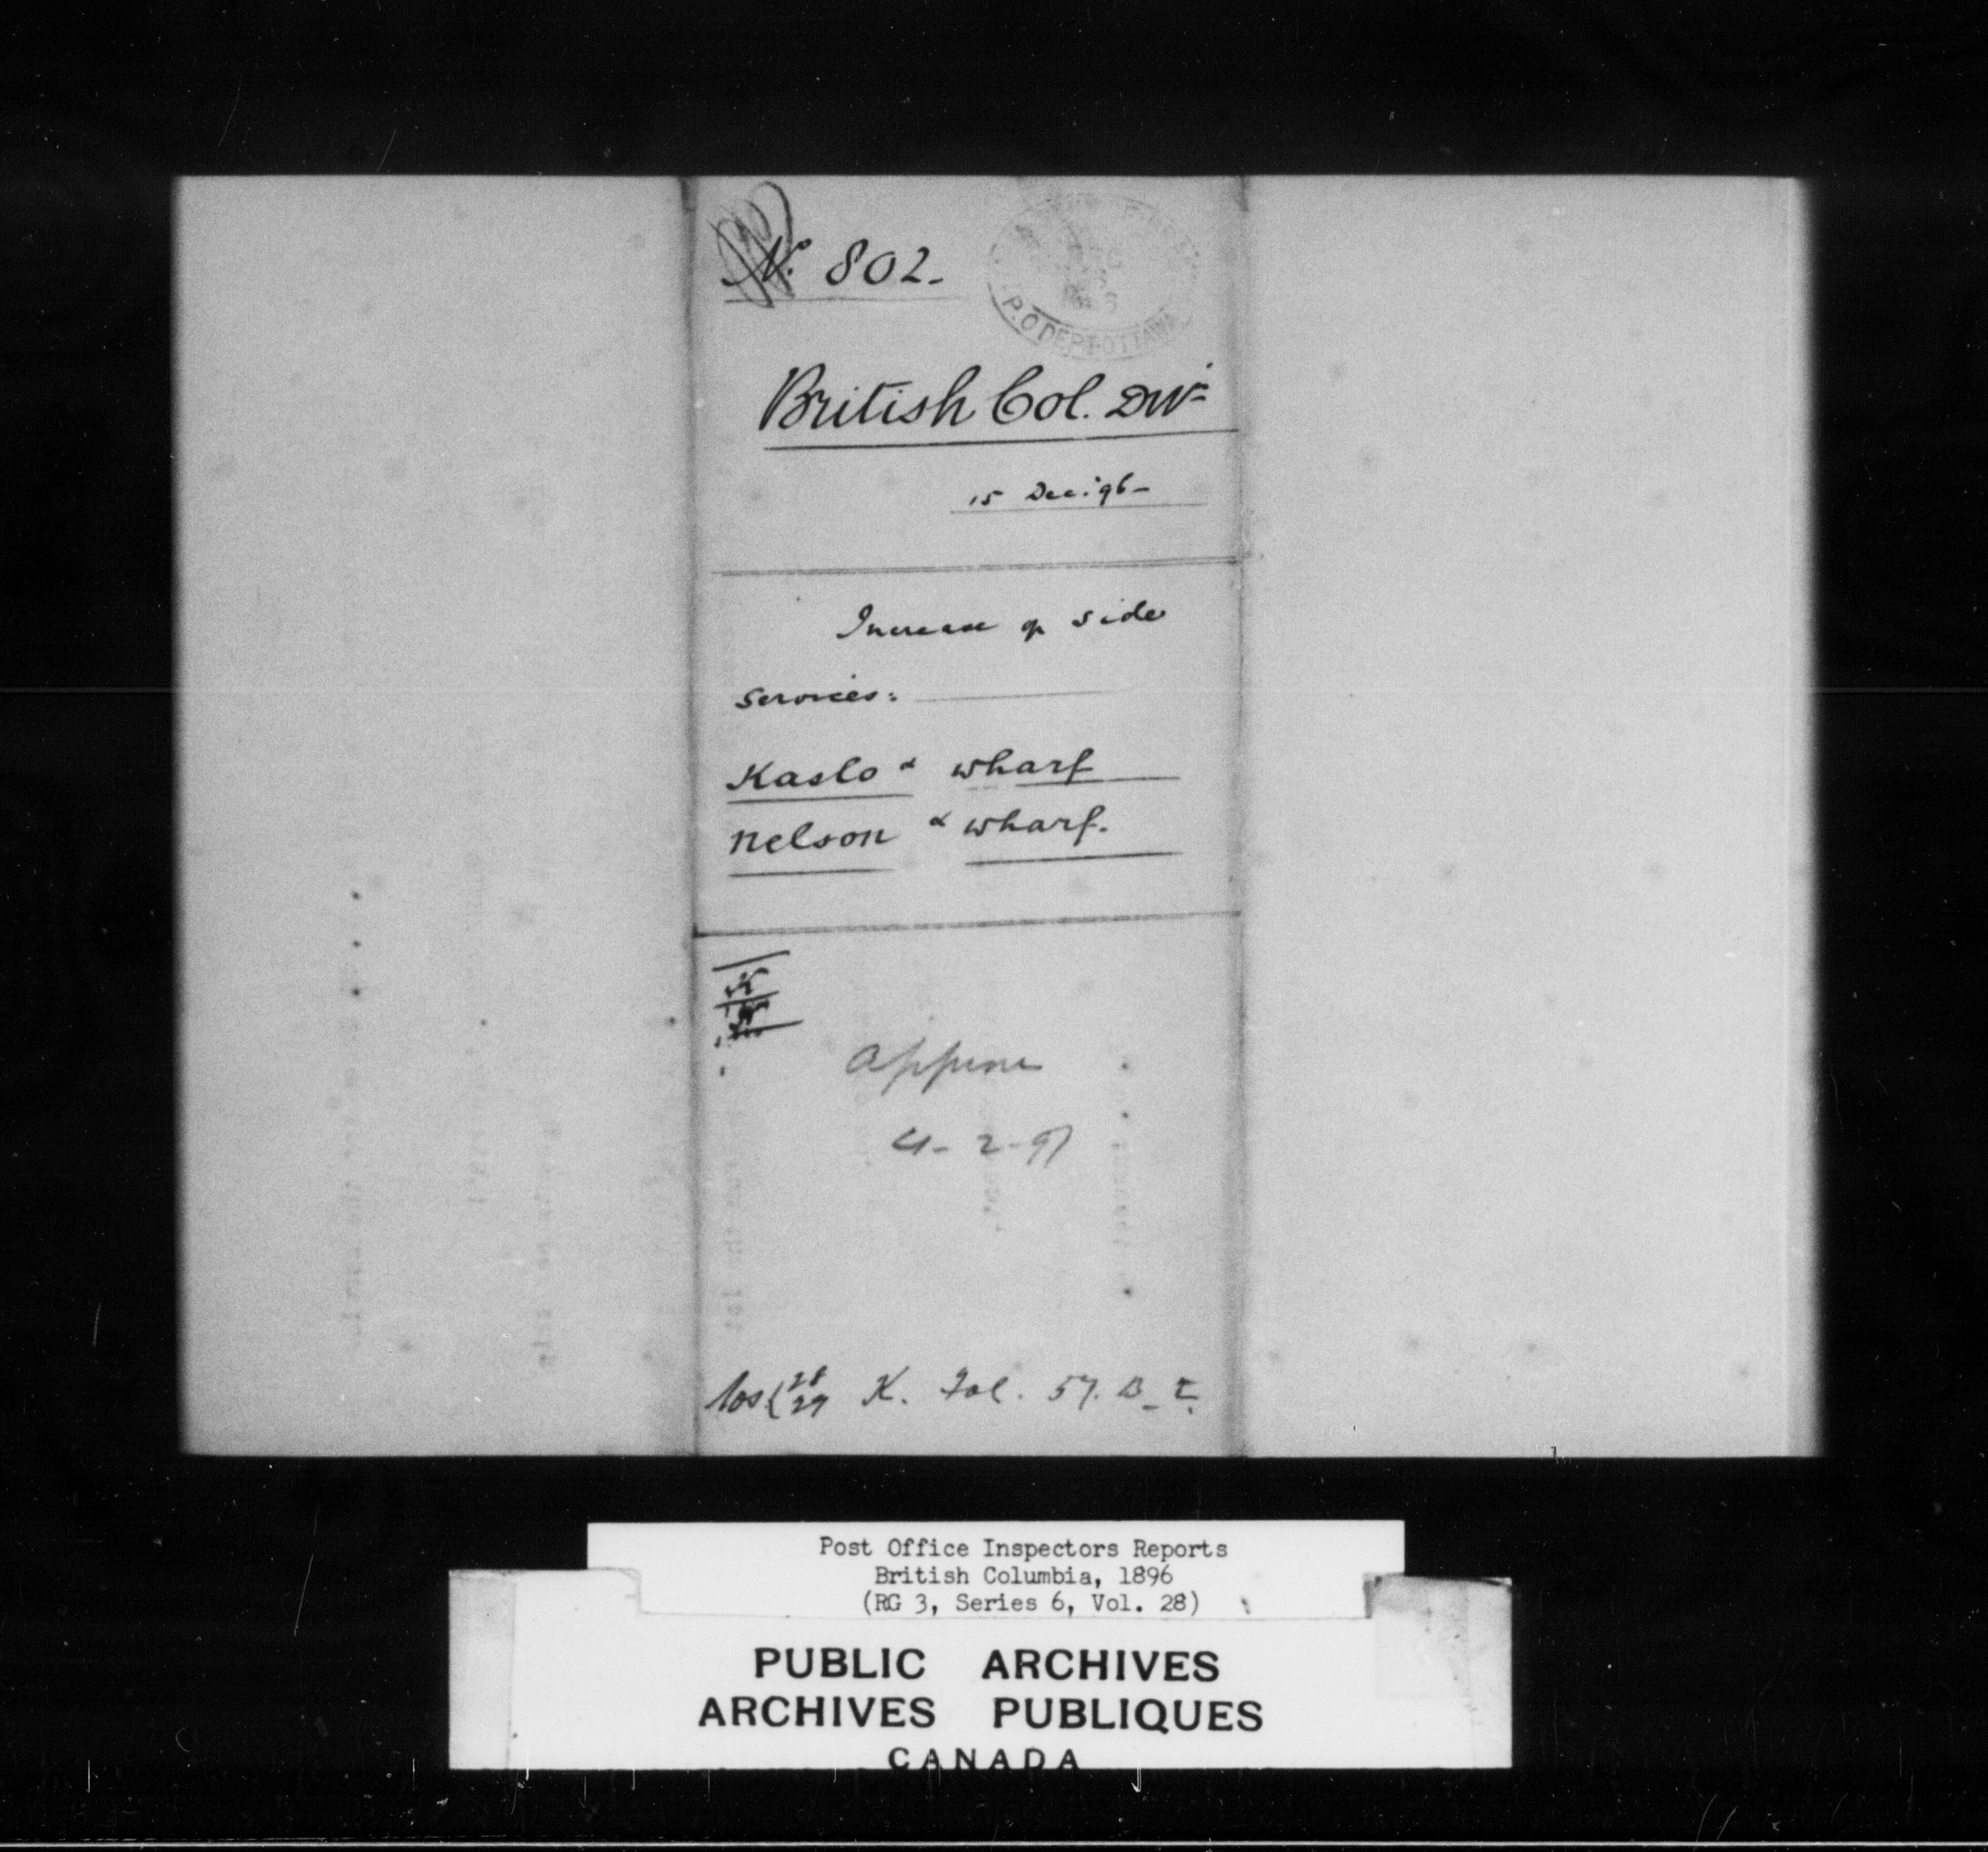 No. 802.
P.O DEPT. OTTAWA
British Col. Divn
15 Dec: 96-
Increase of side
services:
Kaslo & wharf
Nelson & wharf.
Approve
4-2-97
28
29 K. Fol. 57. B_C.
Post Office Inspectors Reports
British Columbia, 1896
(RG 3, Series 6, Vol. 28)
PUBLIC ARCHIVES
ARCHIVES PUBLIQUES
CANADA